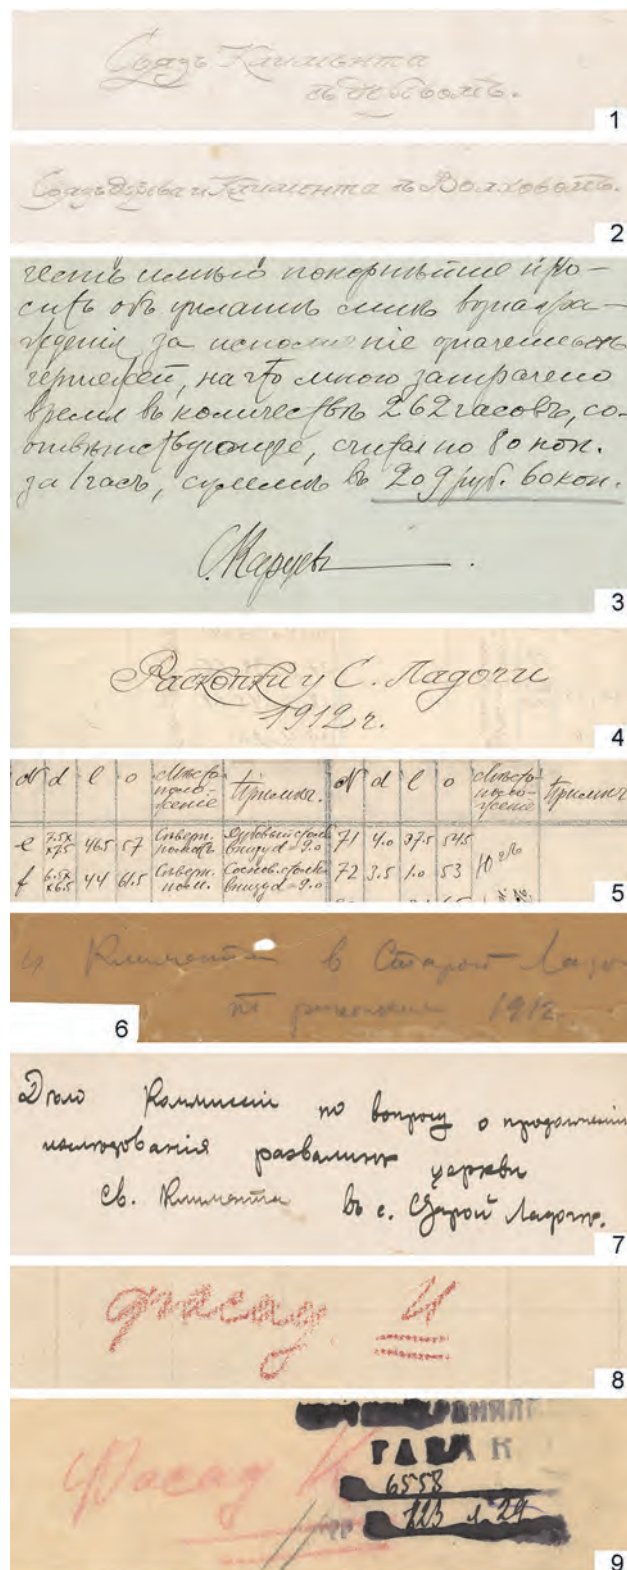 Сѣадъ Климента
1
Климента
2
честь имѣю покорнѣйше про-
сить объ уплатѣ мнѣ вознагра-
жденія за исполненіе означенныхъ
чертежей, на что мною затрачено
время въ количествѣ 262 часовъ, со-
отвѣтствующее, считая по 80 коп.
за 1 часъ, суммѣ въ 209 руб. 60 коп.
3
Раскопки у С. Ладоги
1912 г.
4
N d l о Мѣсто- Примѣч. N d l о Мѣсто- Примѣч
поло- поло-
женіе женіе
e 7.5x x7.5 46.5 57 Сѣверн. Дубовый столб внизу d = 9.0 71 4.0 37.5 54.5
f 6.5x x6.5 44 61.5 Сѣверн. Соснов. столб внизу d = 9.0 72 3.5 1.0 53
5
Климента в Старой Ладо
раскопки 1912
6
Дѣло Коммиссіи по вопросу о продолженіи
изслѣдованія развалинъ церкви
св. Климента въ с. Старой Ладогѣ.
7
фасад И
8
Фасад К
6558
123 л. 29
9